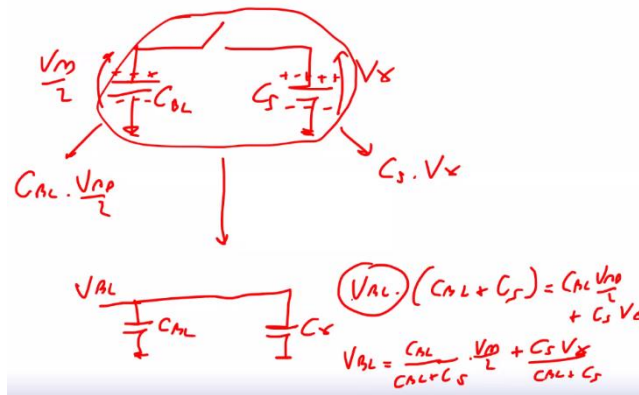 VDD/2
+ + +
- - -
CBL
+ + + +
- - - -
CS
VX
CBL . VDD/2
CS . VX
VBL
CBL
CX
VBL. (CBL + CS) = CBL VDD/2
+ CS VX
VBL = CBL/(CBL+CS) . VDD/2 + CS VX/(CBL+CS)